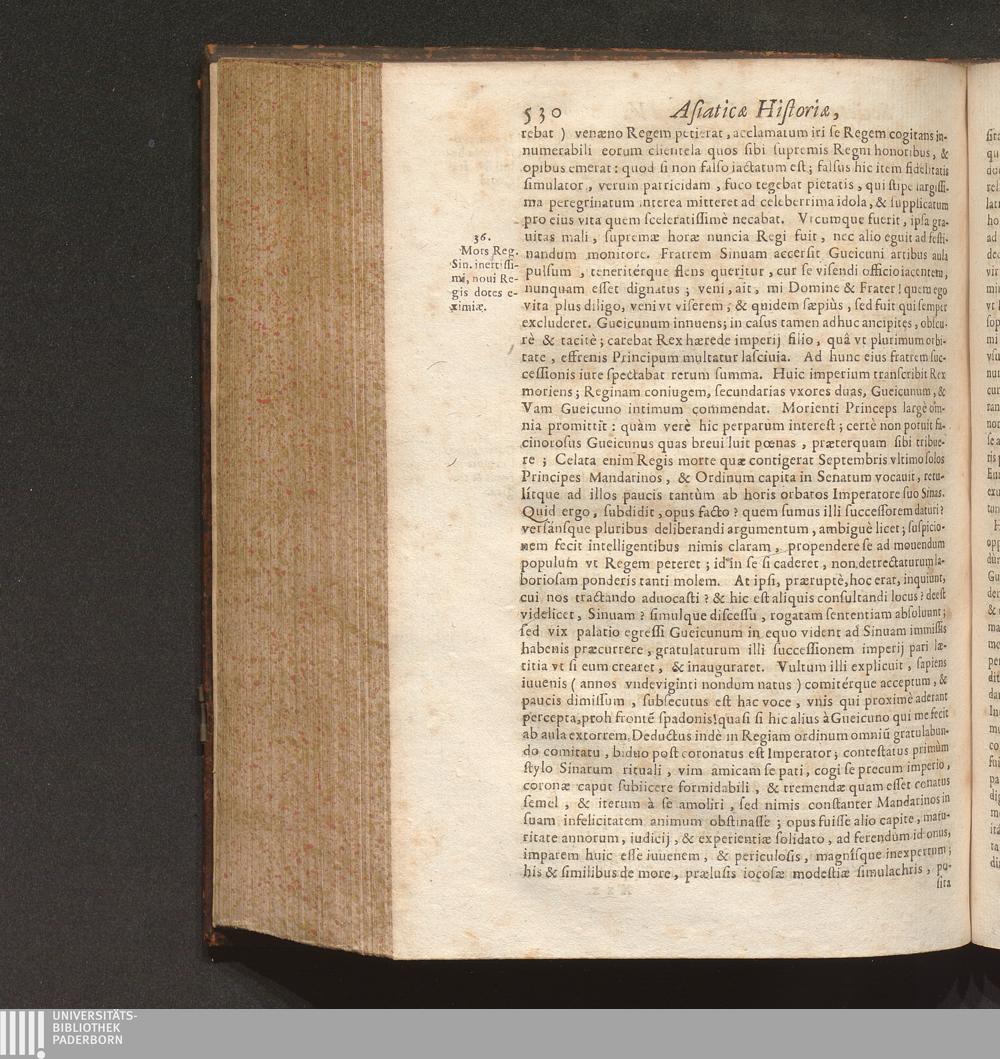 530 Asiaticæ Historiæ,
rebat ) venæno Regem petierat, acclamatum iri se Regem cogitans in-
numerabili eorum clientela quos sibi supremis Regni honoribus, &
opibus emerat: quod si non falso iactatum est; falsus hic item fidelitatis
simulator, verum patricidam, fuco tegebat pietatis, qui stipe largissi-
ma peregrinatum interea mitteret ad celeberrima idola, & supplicatum
pro eius vita quem sceleratissimè necabat. Vtcumque fuerit, ipsa gra-
uitas mali, supremæ horæ nuncia Regi fuit, nec alio eguit ad festi-
36.
Mors Reg.
Sin. inertissi-
mi, noui Re-
gis dotes e-
ximiæ.
nandum monitore. Fratrem Sinuam accersit Gueicuni artibus aula
pulsum, teneritérque flens queritur, cur se visendi officio iacentem,
nunquam esset dignatus; veni, ait, mi Domine & Frater! quem ego
vita plus diligo, veni vt viserem, & quidem sæpiùs, sed fuit qui semper
excluderet. Gueicunum innuens; in casus tamen adhuc ancipites, obscu-
rè & tacitè; carebat Rex hærede imperij filio, quâ vt plurimum orbi-
tate, effrenis Principum multatur lasciuia. Ad hunc eius fratrem suc-
cessionis iure spectabat rerum summa. Huic imperium transcribit Rex
moriens; Reginam coniugem, secundarias vxores duas, Gueicunum, &
Vam Gueicuno intimum commendat. Morienti Princeps largè om-
nia promittit: quàm verè hic perparum interest; certè non potuit fa-
cinorosus Gueicunus quas breui luit pœnas, præterquam sibi tribue-
re; Celata enim Regis morte quæ contigerat Septembris vltimo solos
Principes Mandarinos, & Ordinum capita in Senatum vocauit, retu-
lítque ad illos paucis tantùm ab horis orbatos Imperatore suo Sinas.
Quid ergo, subdidit, opus facto? quem sumus illi successorem daturi?
versánsque pluribus deliberandi argumentum, ambiguè licet; suspicio-
nem fecit intelligentibus nimis claram, propendere se ad mouendum
populum vt Regem peteret; id in se si caderet, non detrectaturum la-
boriosam ponderis tanti molem. At ipsi, præruptè, hoc erat, inquiunt,
cui nos tractando aduocasti? & hic est aliquis consultandi locus? deest
videlicet, Sinuam? simulque discessu, rogatam sententiam absoluunt;
sed vix palatio egressi Gueicunum in equo vident ad Sinuam immissis
habenis præcurrere, gratulaturum illi successionem imperij pari læ-
titia vt si eum crearet, & inauguraret. Vultum illi explicuit, sapiens
iuuenis ( annos vndeviginti nondum natus ) comitérque acceptum, &
paucis dimissum, subsecutus est hac voce, vnis qui proximè aderant
percepta, proh frontẽ spadonis! quasi si hic alius à Gueicuno qui me fecit
ab aula extorrem. Deductus indè in Regiam ordinum omniũ gratulabun-
do comitatu, biduo post coronatus est Imperator; contestatus primùm
stylo Sinarum rituali, vim amicam se pati, cogi se precum imperio,
coronæ caput subiicere formidabili, & tremendæ quam esset conatus
semel, & iterum à se amoliri, sed nimis constanter Mandarinos in
suam infelicitatem animum obstinasse; opus fuisse alio capite, matu-
ritate annorum, iudicij, & experientiæ solidato, ad ferendum id onus,
imparem huic esse iuuenem, & periculosis, magnísque inexpertum;
his & similibus de more, prælusis iocosæ modestiæ simulachris, po-
sita
UNIVERSITÄTS-
BIBLIOTHEK
PADERBORN